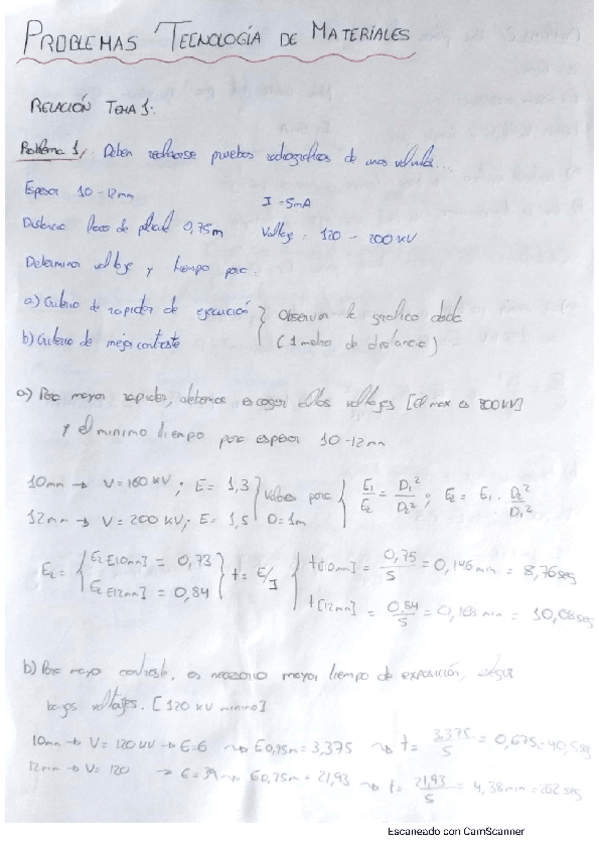 PROBLEMAS TECNOLOGÍA DE MATERIALES
RELACIÓN TEMA 1:
Problema 1, Deben realizarse pruebas radiográficas de unas válvulas...
Espesor 10-12mm I = 5mA
Distancia foco de placa 0,75m Voltaje = 120 - 200 kV
Determinar voltaje y tiempo para:
a) Criterio de rapidez de ejecución } Observar la gráfica dada
b) Criterio de mejor contraste (1 metro de distancia)
a) Para mayor rapidez, debemos escoger altos voltajes [El max es 200kV]
y el mínimo tiempo para espesor 10-12mm
10mm → V = 160 kV; E = 1,3 } Valores para { E1/E2 = D1²/D2²; E2 = E1 · D2²/D1²
12mm → V = 200 kV; E = 1,5 D = 1m
E2 = { E2 E[10mm] = 0,73 } t = E/I { t[10mm] = 0,75/5 = 0,146 min = 8,76seg
E2 E[12mm] = 0,84 t[12mm] = 0,84/5 = 0,168 min = 10,08seg
b) Para mayor contraste, es necesario mayor tiempo de exposición,
bajos voltajes. [120 kV mínimo]
10mm → V = 120 kV → E=6 → E0,75m = 3,375 → t = 3,375/5 = 0,675 = 40,5seg
12mm → V = 120 → E = 39 → E0,75m = 21,93 → t = 21,93/5 = 4,38min = 262 seg
Escaneado con CamScanner